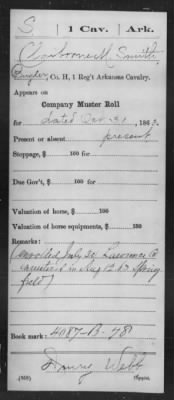 S | 1 Cav. | Ark.
Smith
Bugler, Co. H, 1 Reg't Arkansas Cavalry.
Appears on
Company Muster Roll
for dated Oct 31, 186
Present or absent present
Stoppage, $ 100 for
Due Gov't, $ 100 for
Valuation of horse, $ 100
Valuation of horse equipments, $ 100
Remarks:
(enrolled July 20 Lawrence Co
mustered in Aug 12 at Spring
field)
Book mark: 4087-B-781
Webb
(858) Copyist.